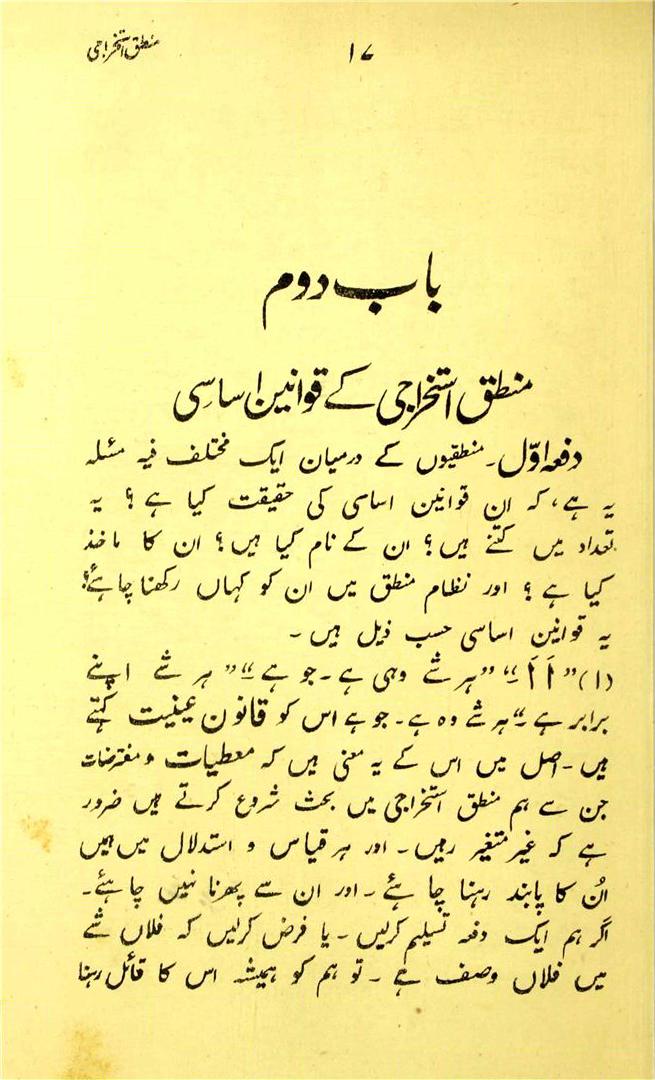 منطق استخراجی
۱۷
باب دوم
منطق استخراجی کے قوانین اساسی
دفعہ اوّل۔ منطقیوں کے درمیان ایک مختلف فیہ مسئلہ
یہ ہے، کہ ان قوانین اساسی کی حقیقت کیا ہے؟ یہ
تعداد میں کتنے ہیں؟ ان کے نام کیا ہیں؟ ان کا ماخذ
کیا ہے؟ اور نظام منطق میں ان کو کہاں رکھنا چاہئے؟
یہ قوانین اساسی حسب ذیل ہیں۔
(۱) "ہر شے وہی ہے۔ جو ہے" "ہر شے اپنے
برابر ہے" ہر شے وہ ہے۔ جو ہے اس کو قانون عینیت کہتے
ہیں۔ اصل میں اس کے یہ معنی ہیں کہ معطیات و مفترضات
جن سے ہم منطق استخراجی میں بحث شروع کرتے ہیں ضرور
ہے کہ غیر متغیر رہیں۔ اور ہر قیاس و استدلال میں ہمیں
اُن کا پابند رہنا چاہئے۔ اور ان سے پھرنا نہیں چاہئے۔
اگر ہم ایک دفعہ تسلیم کرلیں۔ یا فرض کرلیں کہ فلاں شے
میں فلاں وصف ہے۔ تو ہم کو ہمیشہ اس کا قائل رہنا